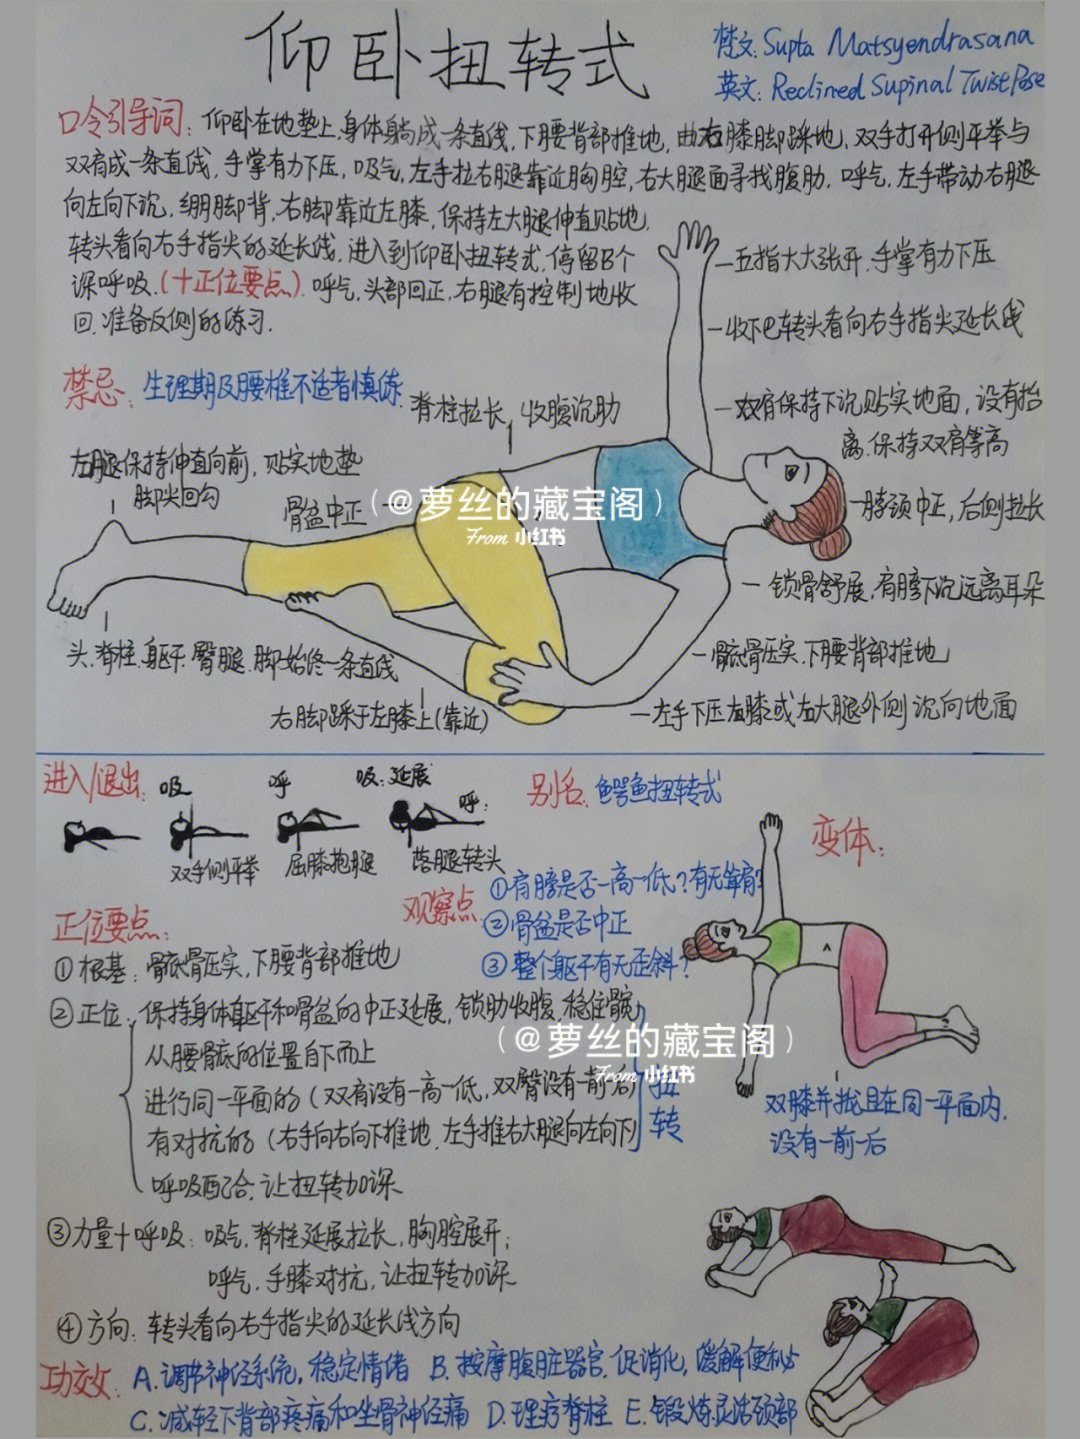 仰卧扭转式
梵文: Supta Matsyendrasana
英文: Reclined Supinal Twist Pose
口令引导词: 仰卧在地垫上,身体躺成一条直线,下腰背部推地,曲右膝脚踩地,双手打开侧平举与
双肩成一条直线,手掌有力下压,吸气,左手拉右腿靠近胸腔,右大腿面寻找腹肋,呼气,左手带动右腿
向左向下沉,绷脚背,右脚靠近左膝,保持左大腿伸直贴地,
转头看向右手指尖的延长线,进入到仰卧扭转式,停留5个
深呼吸.(十正位要点).呼气,头部回正,右腿有控制地收
回,准备反侧的练习.
禁忌: 生理期及腰椎不适者慎练.
五指大大张开,手掌有力下压
收下巴转头看向右手指尖延长线
双肩保持下沉贴实地面,没有抬
离,保持双肩等高
脊柱拉长,收腹沉肋
左腿保持伸直向前,贴实地垫
脚尖回勾
骨盆中正
(@萝丝的藏宝阁)
From 小红书
脖颈中正,后侧拉长
锁骨舒展,肩膀下沉远离耳朵
头.脊柱.躯干.臀腿.脚始终一条直线
骶骨压实,下腰背部推地
右脚踩于左膝上(靠近)
左手下压右膝或右大腿外侧沉向地面
进入/退出:
吸
呼
吸:延展
呼:
双手侧平举
屈膝抱腿
落腿转头
别名: 鳄鱼扭转式
变体:
观察点
①肩膀是否一高一低?有无耸肩?
②骨盆是否中正
③整个躯干有无歪斜?
正位要点:
①根基: 骶骨压实,下腰背部推地
②正位: 保持身体躯干和骨盆的中正延展,锁肋收腹,稳住髋
从腰骶的位置自下而上
进行同一平面的(双肩没有一高一低,双臀没有一前一后)
有对抗的(右手向右向下推地,左手推右大腿向左向下)
呼吸配合,让扭转加深
扭
转
(@萝丝的藏宝阁)
From 小红书
双膝并拢且在同一平面内,
没有一前一后
③力量+呼吸: 吸气,脊柱延展拉长,胸腔展开;
呼气,手膝对抗,让扭转加深
④方向: 转头看向右手指尖的延长线方向
功效: A.调节神经系统,稳定情绪 B.按摩腹脏器官,促消化,缓解便秘
C.减轻下背部疼痛和坐骨神经痛 D.理疗脊柱 E.锻炼灵活颈部